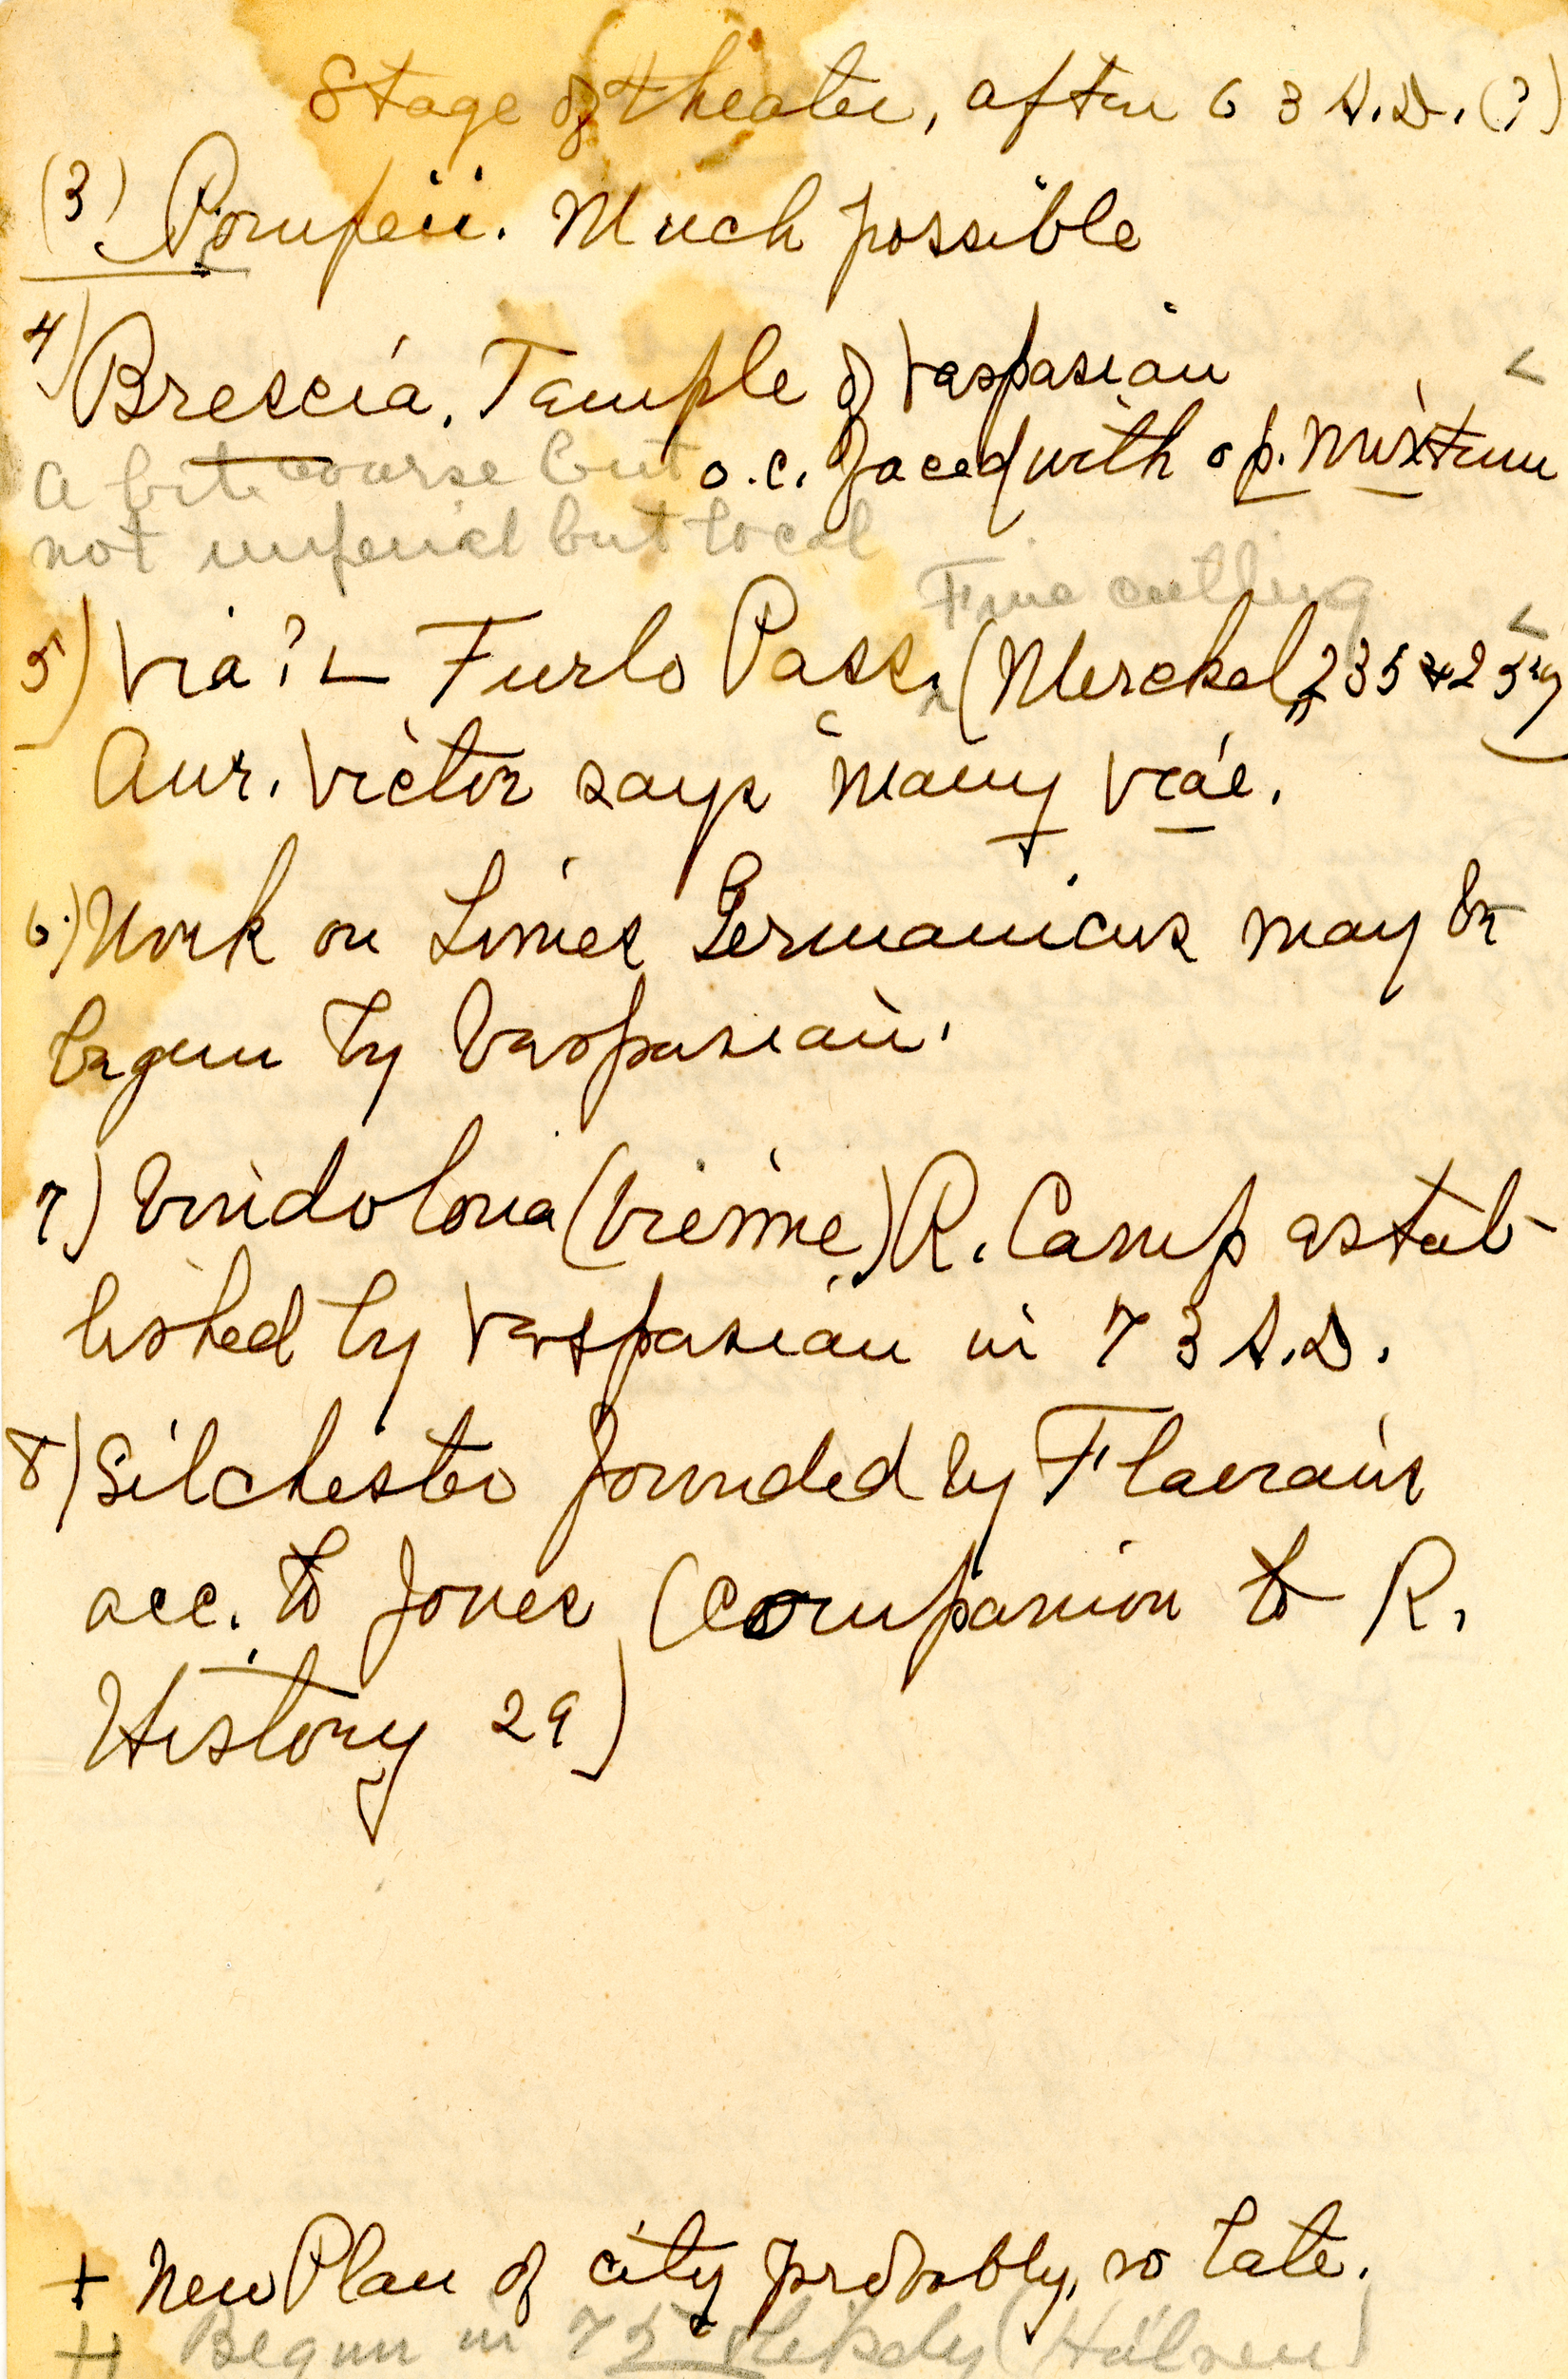 Stage of theater, after 63 A.D. (?)
(3) Pompeii. Much possible
4) Brescia. Temple of Vespasian <
o.c. faced with op. mixtum
a bit coarse but
not imperial but local
Fine cutling
5) Via? Furlo Pass. (Merckel, 235 + <
Aur. Victor says many viae.
6) Work on Limes Germanicus may be
begun by Vespasian.
7) Vindobona (Vienne) R. Camp estab-
lished by Vespasian in 73 A.D.
8) Silchester founded by Flavians
acc. to Jones (Companion to R.
History 29)
+ New Plan of city probably, so late.
++ Begun in 75 likely (Hülsen)